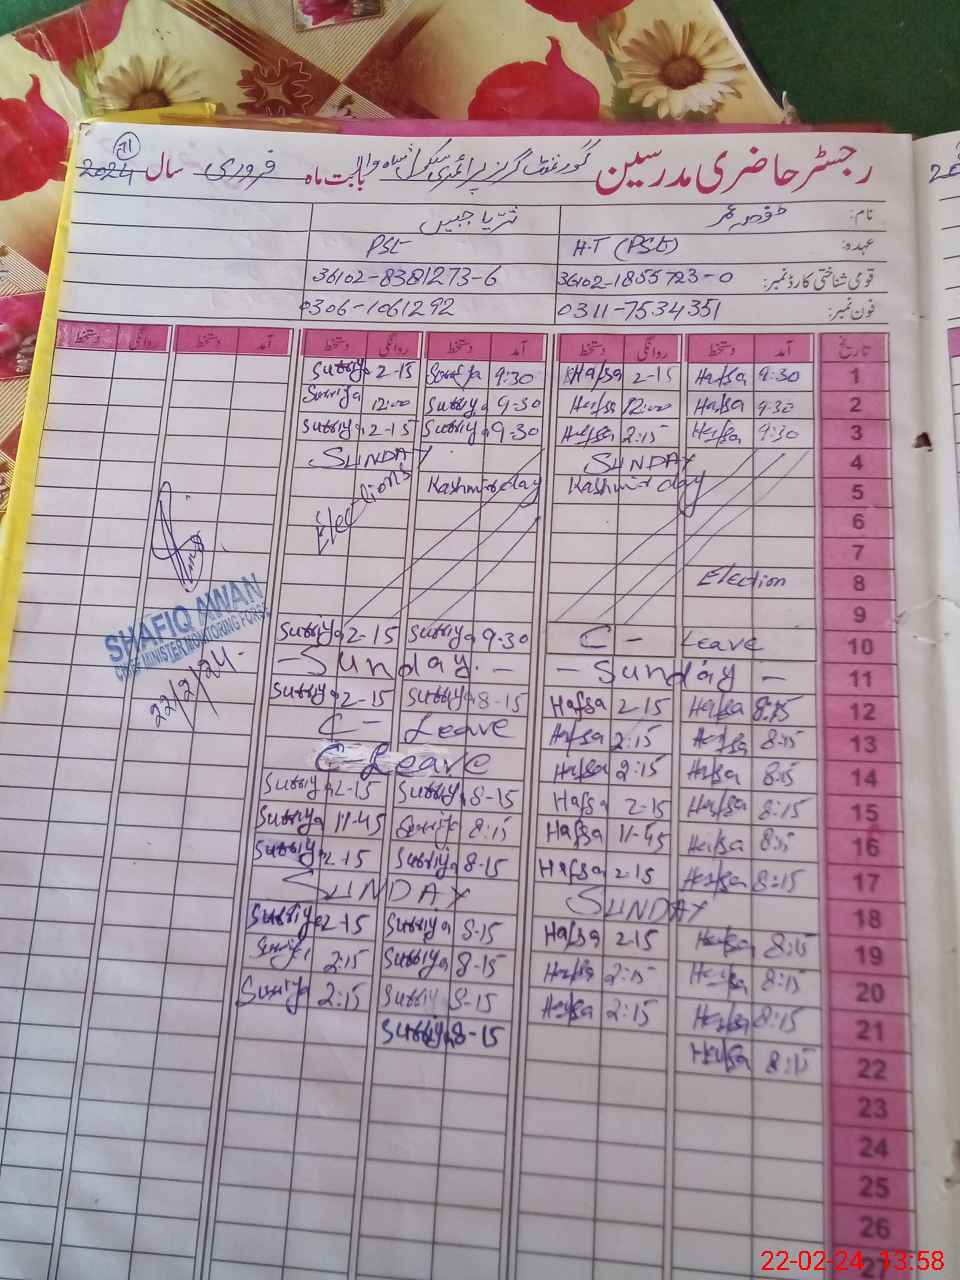 رجسٹر حاضری مدرسین گورنمنٹ گرلز پرائمری سکول بابت ماہ فروری سال 2024
71
نام: حفصہ عمر ثریا جبیں
عہدہ: H.T (PST) PST
قومی شناختی کارڈ نمبر: 36102-1855723-0 36102-8381273-6
فون نمبر: 0311-7534351 0306-1061292
تاریخ آمد دستخط روانگی دستخط آمد دستخط روانگی دستخط آمد دستخط روانگی دستخط
1 9:30 Hafsa 2-15 Hafsa 9:30 Surriya 2-15 Surriya
2 9:30 Hafsa 12:00 Hafsa 9-30 Surriya 12:00 Surriya
3 9:30 Hafsa 2:15 Hafsa 9-30 Surriya 2-15 Surriya
4 SUNDAY SUNDAY
5 Kashmir day Kashmir day
6 Elections
7
8 Election
9
10 C - Leave 9-30 Surriya 2-15 Surriya
11 - Sunday - - Sunday - -
12 8:15 Hafsa 2-15 Hafsa 8-15 Surriya 2-15 Surriya
13 8:15 Hafsa 2:15 Hafsa C - Leave
14 8:15 Hafsa 2:15 Hafsa C Leave
15 8:15 Hafsa 2-15 Hafsa 8-15 Surriya 2-15 Surriya
16 8:15 Hafsa 11-45 Hafsa 8:15 Surriya 11-45 Surriya
17 8:15 Hafsa 2-15 Hafsa 8-15 Surriya 2-15 Surriya
18 SUNDAY SUNDAY
19 8:15 Hafsa 2-15 Hafsa 8-15 Surriya 2-15 Surriya
20 8:15 Hafsa 2:15 Hafsa 8-15 Surriya 2:15 Surriya
21 8:15 Hafsa 2:15 Hafsa 8-15 Surriya 2:15 Surriya
22 8:15 Hafsa 8-15 Surriya
23
24
25
26
27
SHAFIQ MNAN
CHIEF MINISTER MONITORING FORCE
22/2/24
22-02-24 13:58